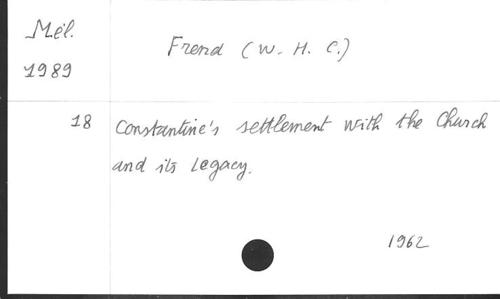 Mél.
1989
Frend (W. H. C.)
18
Constantine's settlement with the Church
and its Legacy.
1962